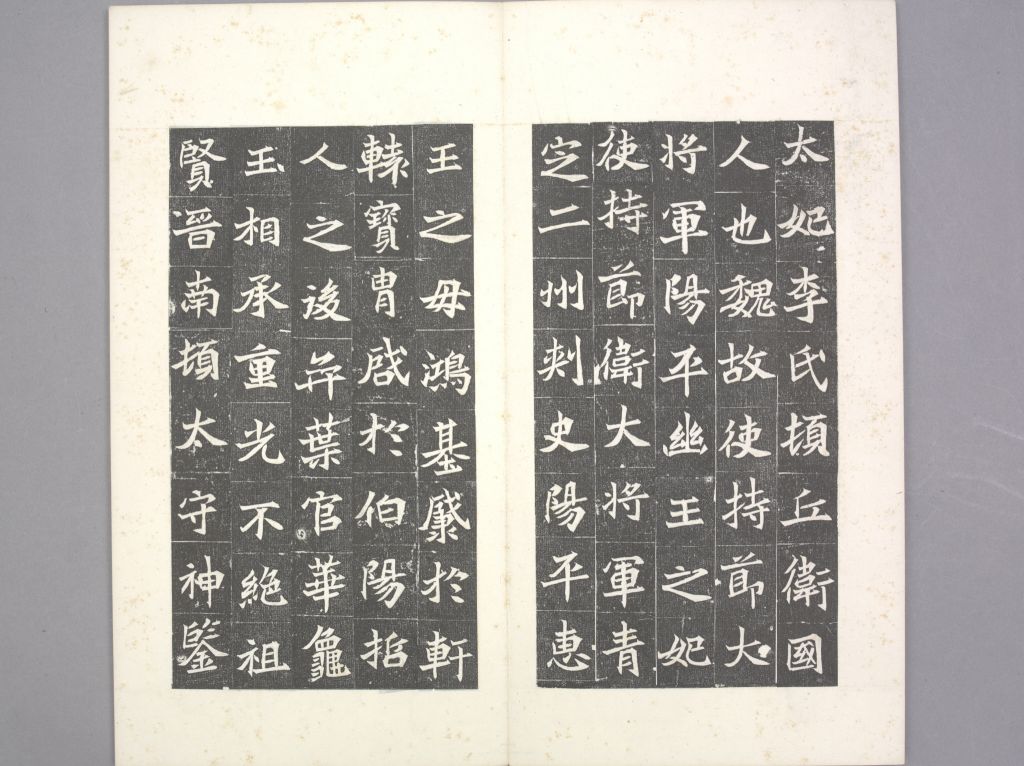 太妃李氏頓丘衛國
人也魏故使持節大
将軍陽平幽王之妃
使持節衛大将軍青
定二州刺史陽平惠
王之母鴻基廞於軒
轅寶胄啓於伯陽哲
人之後弈葉官華龜
玉相承重光不絶祖
賢晉南頓太守神鑒